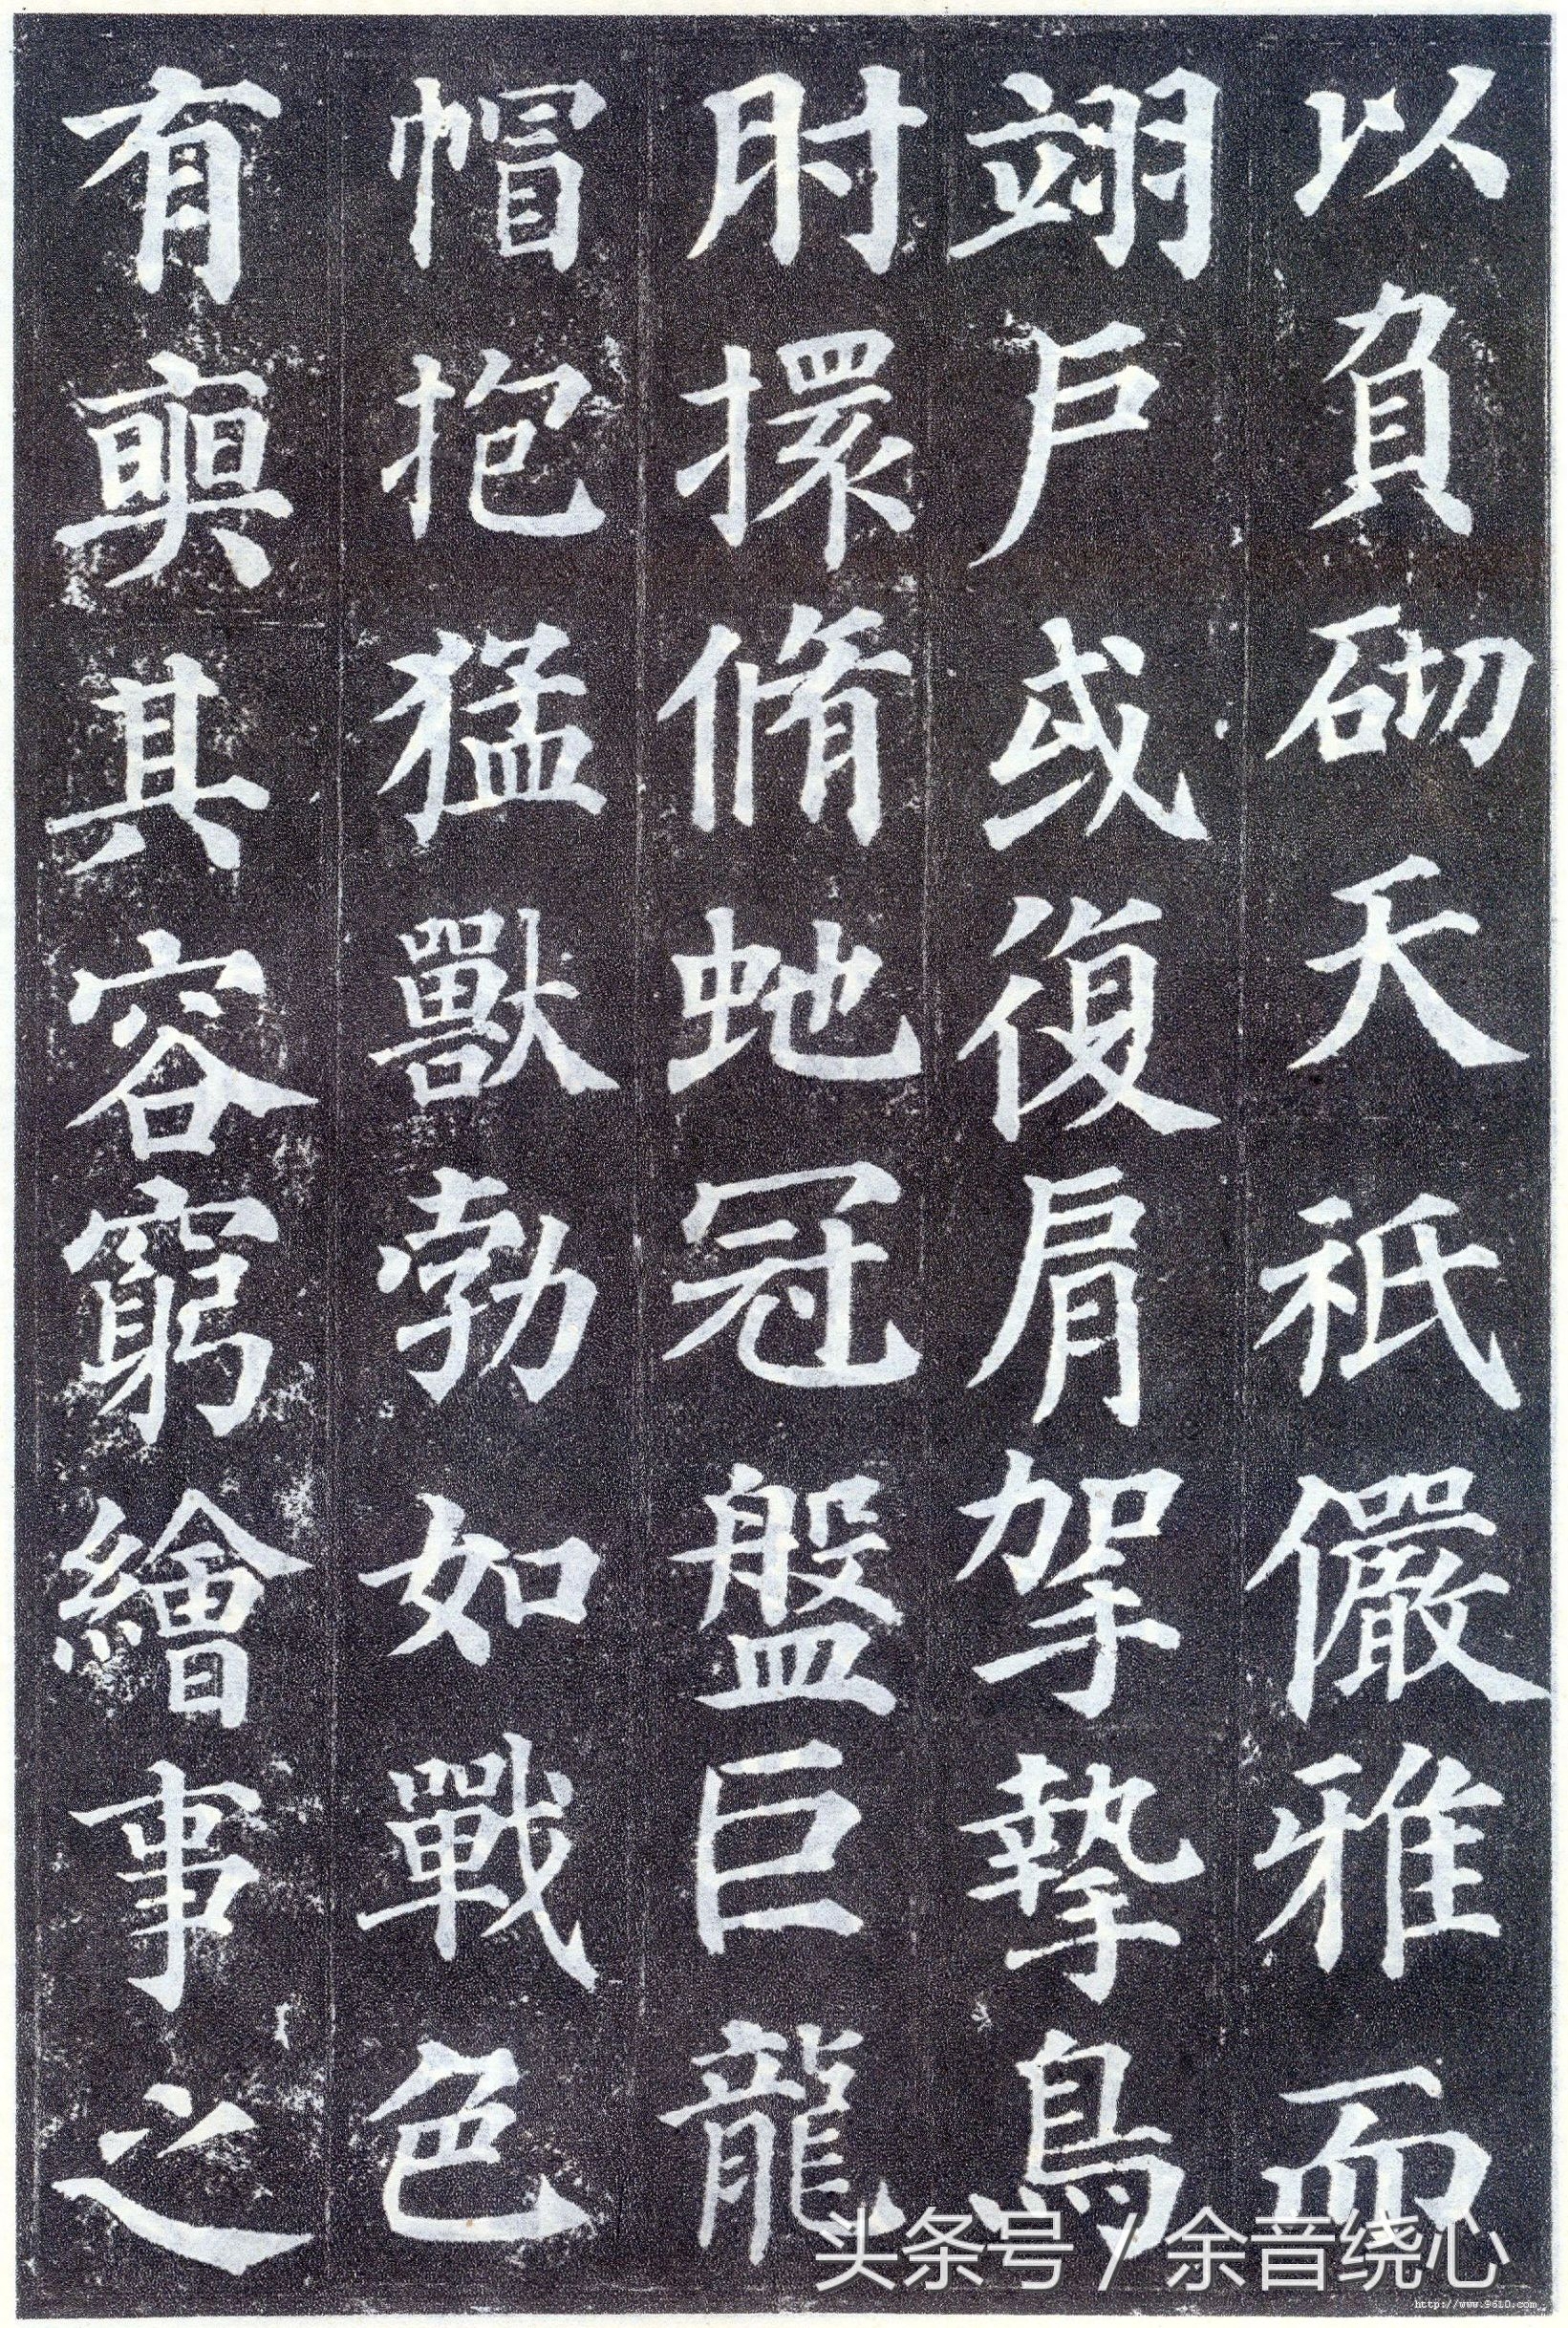 以負砌天祇儼雅而
翊戶或復肩挐摯鳥
肘擐脩虵冠盤巨龍
帽抱猛獸勃如戰色
有奭其容窮繪事之
头条号 / 余音绕心
http://www.9610.com